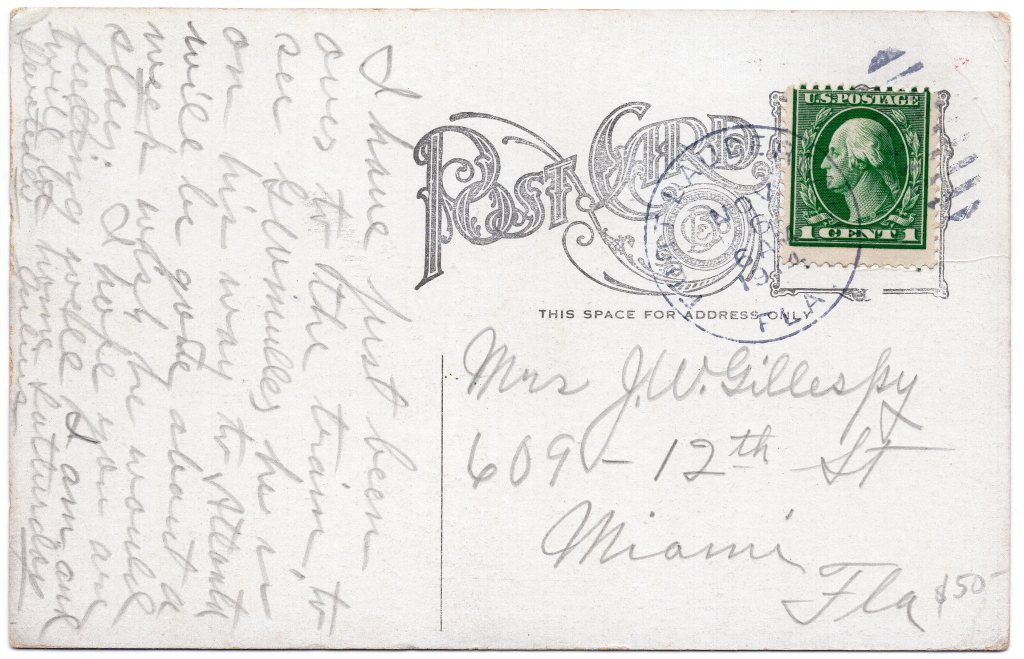 I have just been
over to the train, to
see Grumbles, he is
on his way to Atlanta
will be gone about a
week only he would
stay. I hope you are
feeling well. I am, and
will be home Saturday
POST CARD
THIS SPACE FOR ADDRESS ONLY
LAUDERDALE
NOV
6
1914
FLA.
U.S. POSTAGE
1 CENT 1
Mrs J.W. Gillespy
609 - 12th St
Miami
Fla
$50-